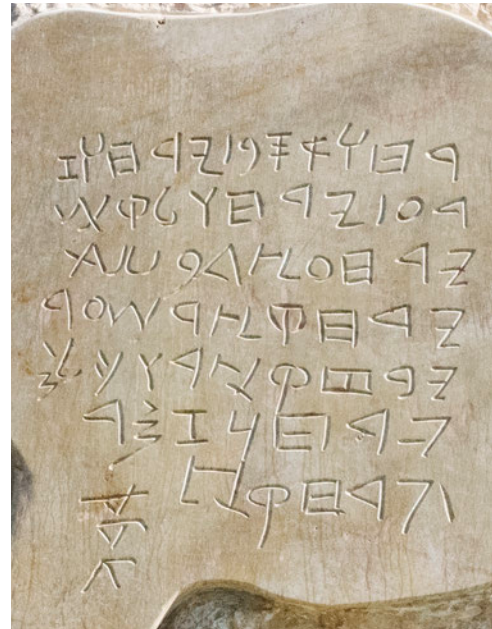 𐤓𐤇𐤅𐤀𐤎𐤐𐤟𐤉𐤓𐤇𐤅𐤆
𐤓𐤏𐤟𐤉𐤓𐤇𐤅𐤋𐤒𐤔
𐤉𐤓𐤇𐤏𐤑𐤃𐤐𐤔𐤕
𐤉𐤓𐤇𐤒𐤑𐤓𐤔𐤏𐤓
𐤉𐤓𐤇𐤒𐤑𐤓𐤅𐤊𐤋
𐤉𐤓𐤇𐤅𐤆𐤌𐤓
𐤉𐤓𐤇𐤒𐤑